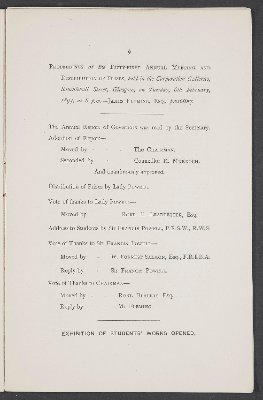 9
PROCEEDINGS at the FIFTY-FIRST ANNUAL MEETING AND
DISTRIBUTION OF PRIZES, held in the Corporation Galleries,
Sauchiehall Street, Glasgow, on Tuesday, 6th February,
at 8 p.m.—JAMES FLEMING, Esq., presiding.
The Annual Report of Governors was read by the Secretary.
Adoption of Report—
Moved by - - The CHAIRMAN.
Seconded by - Councillor R.
And unanimously approved.
Distribution of Prizes by Lady POWELL.
Vote of thanks to Lady POWELL—
Moved by - ROBT. Esq.
Address to Students by Sir FRANCIS POWELL, P.R.S.W., R.W.S.
Vote of Thanks to SIR FRANCIS POWELL—
Moved by - W. FORREST SALMON, Esq., F.R.I.B.A.
Reply by - Sir FRANCIS POWELL.
Vote of Thanks to CHAIRMAN—
Moved by - ROBT. Esq.
Reply by - Mr. FLEMING.
EXHIBITION OF STUDENTS' WORKS OPENED.